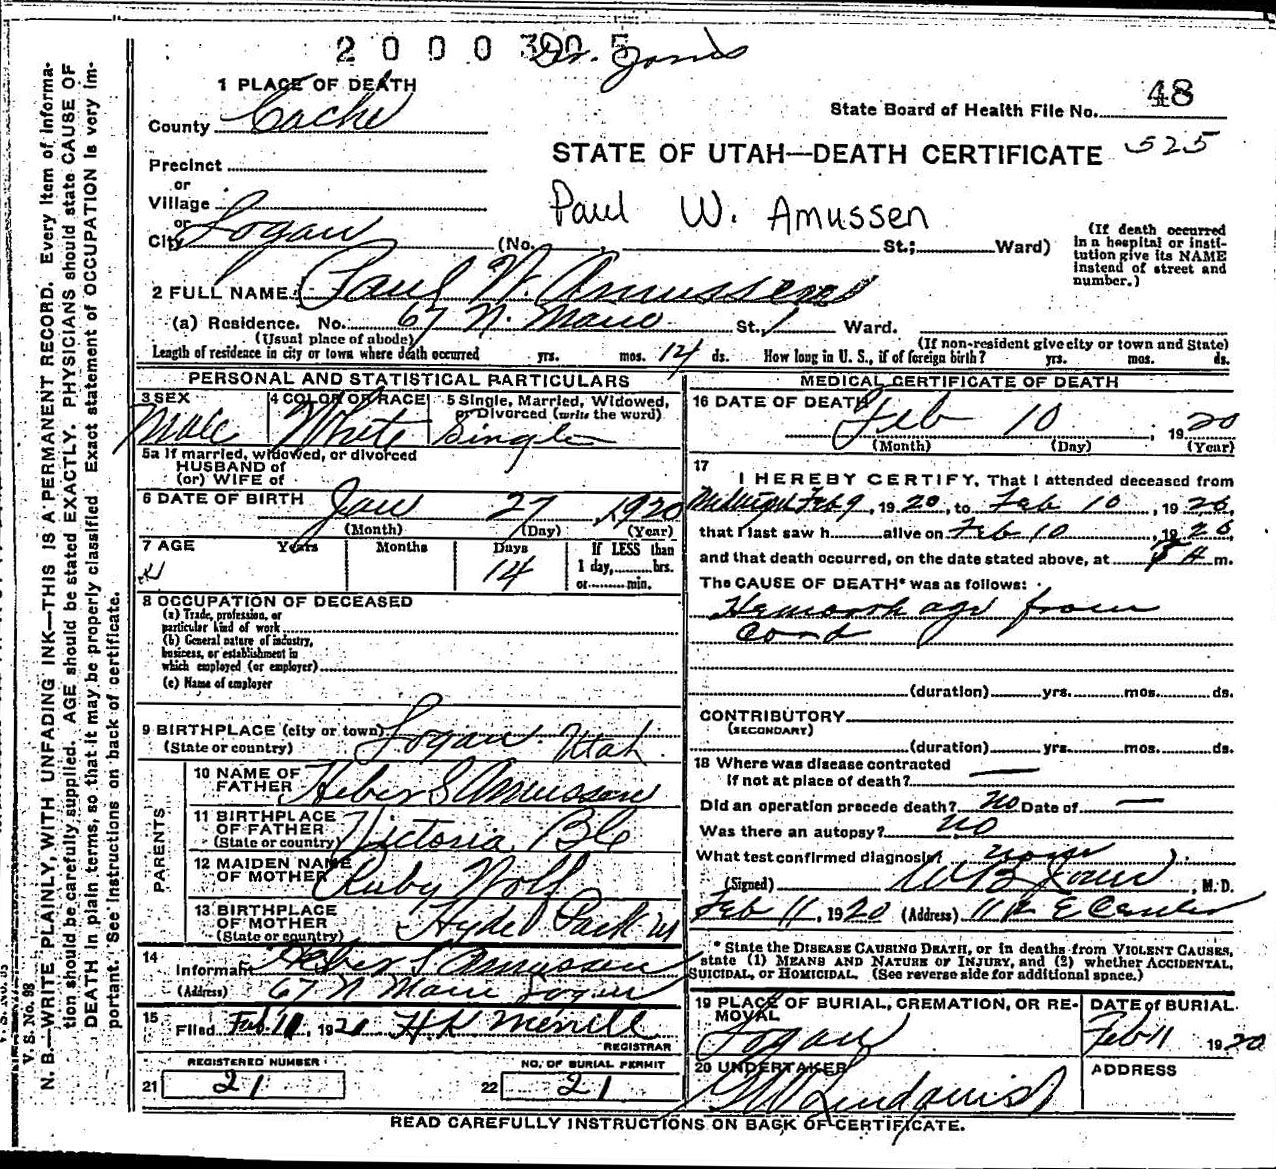 2 0 0 0 3 0 0 5 Dr. Jones
1 PLACE OF DEATH
State Board of Health File No. 48
County Cache
STATE OF UTAH—DEATH CERTIFICATE 525
Precinct
or
Village
Paul W. Amussen
or
City Logan (No. , St.; Ward)
(If death occurred in a hospital or insti-
tution give its NAME
instead of street and
number.)
2 FULL NAME Paul W. Amussen
(a) Residence. No. 67 N. Main St. 1 Ward.
(Usual place of abode) (If non-resident give city or town and State)
Length of residence in city or town where death occurred yrs. mos. 14 ds. How long in U. S., if of foreign birth? yrs. mos. ds.
PERSONAL AND STATISTICAL PARTICULARS
3 SEX 4 COLOR OR RACE 5 Single, Married, Widowed,
or Divorced (write the word)
Male White Single
5a If married, widowed, or divorced
HUSBAND of
(or) WIFE of
6 DATE OF BIRTH Jan 27 1920
(Month) (Day) (Year)
7 AGE Years Months Days If LESS than
1 day, hrs.
or min.
14
8 OCCUPATION OF DECEASED
(a) Trade, profession, or
particular kind of work
(b) General nature of industry,
business, or establishment in
which employed (or employer)
(c) Name of employer
9 BIRTHPLACE (city or town) Logan Utah
(State or country)
PARENTS
10 NAME OF
FATHER Heber S Amussen
11 BIRTHPLACE
OF FATHER Victoria BC
(State or country)
12 MAIDEN NAME
OF MOTHER Ruby Wolf
13 BIRTHPLACE
OF MOTHER Hyde Park
(State or country)
14
Informant Heber S Amussen
(Address) 67 N Main Logan
15
Filed Feb 11, 1920 H K Merrill
REGISTRAR
REGISTERED NUMBER NO. OF BURIAL PERMIT
21 21 22 21
MEDICAL CERTIFICATE OF DEATH
16 DATE OF DEATH
Feb 10, 1920
(Month) (Day) (Year)
17
I HEREBY CERTIFY, That I attended deceased from
Midnight Feb 9, 1920, to Feb 10, 1920,
that I last saw h alive on Feb 10, 1920,
and that death occurred, on the date stated above, at A m.
The CAUSE OF DEATH* was as follows:
Hemorrhage from
Cord
(duration) yrs. mos. ds.
CONTRIBUTORY
(SECONDARY)
(duration) yrs. mos. ds.
18 Where was disease contracted
if not at place of death? —
Did an operation precede death? No Date of —
Was there an autopsy? No
What test confirmed diagnosis? none
(Signed) W B Jones, M.D.
Feb 11, 1920 (Address) E Center
* State the DISEASE CAUSING DEATH, or in deaths from VIOLENT CAUSES,
state (1) MEANS AND NATURE OF INJURY, and (2) whether ACCIDENTAL,
SUICIDAL, or HOMICIDAL. (See reverse side for additional space.)
19 PLACE OF BURIAL, CREMATION, OR RE-
MOVAL
Logan
DATE of BURIAL
Feb 11 1920
20 UNDERTAKER
G W Lindquist
ADDRESS
READ CAREFULLY INSTRUCTIONS ON BACK OF CERTIFICATE.
V. S. No. 98
N. B.—WRITE PLAINLY, WITH UNFADING INK—THIS IS A PERMANENT RECORD. Every item of informa-
tion should be carefully supplied. AGE should be stated EXACTLY. PHYSICIANS should state CAUSE OF
DEATH in plain terms, so that it may be properly classified. Exact statement of OCCUPATION is very im-
portant. See instructions on back of certificate.